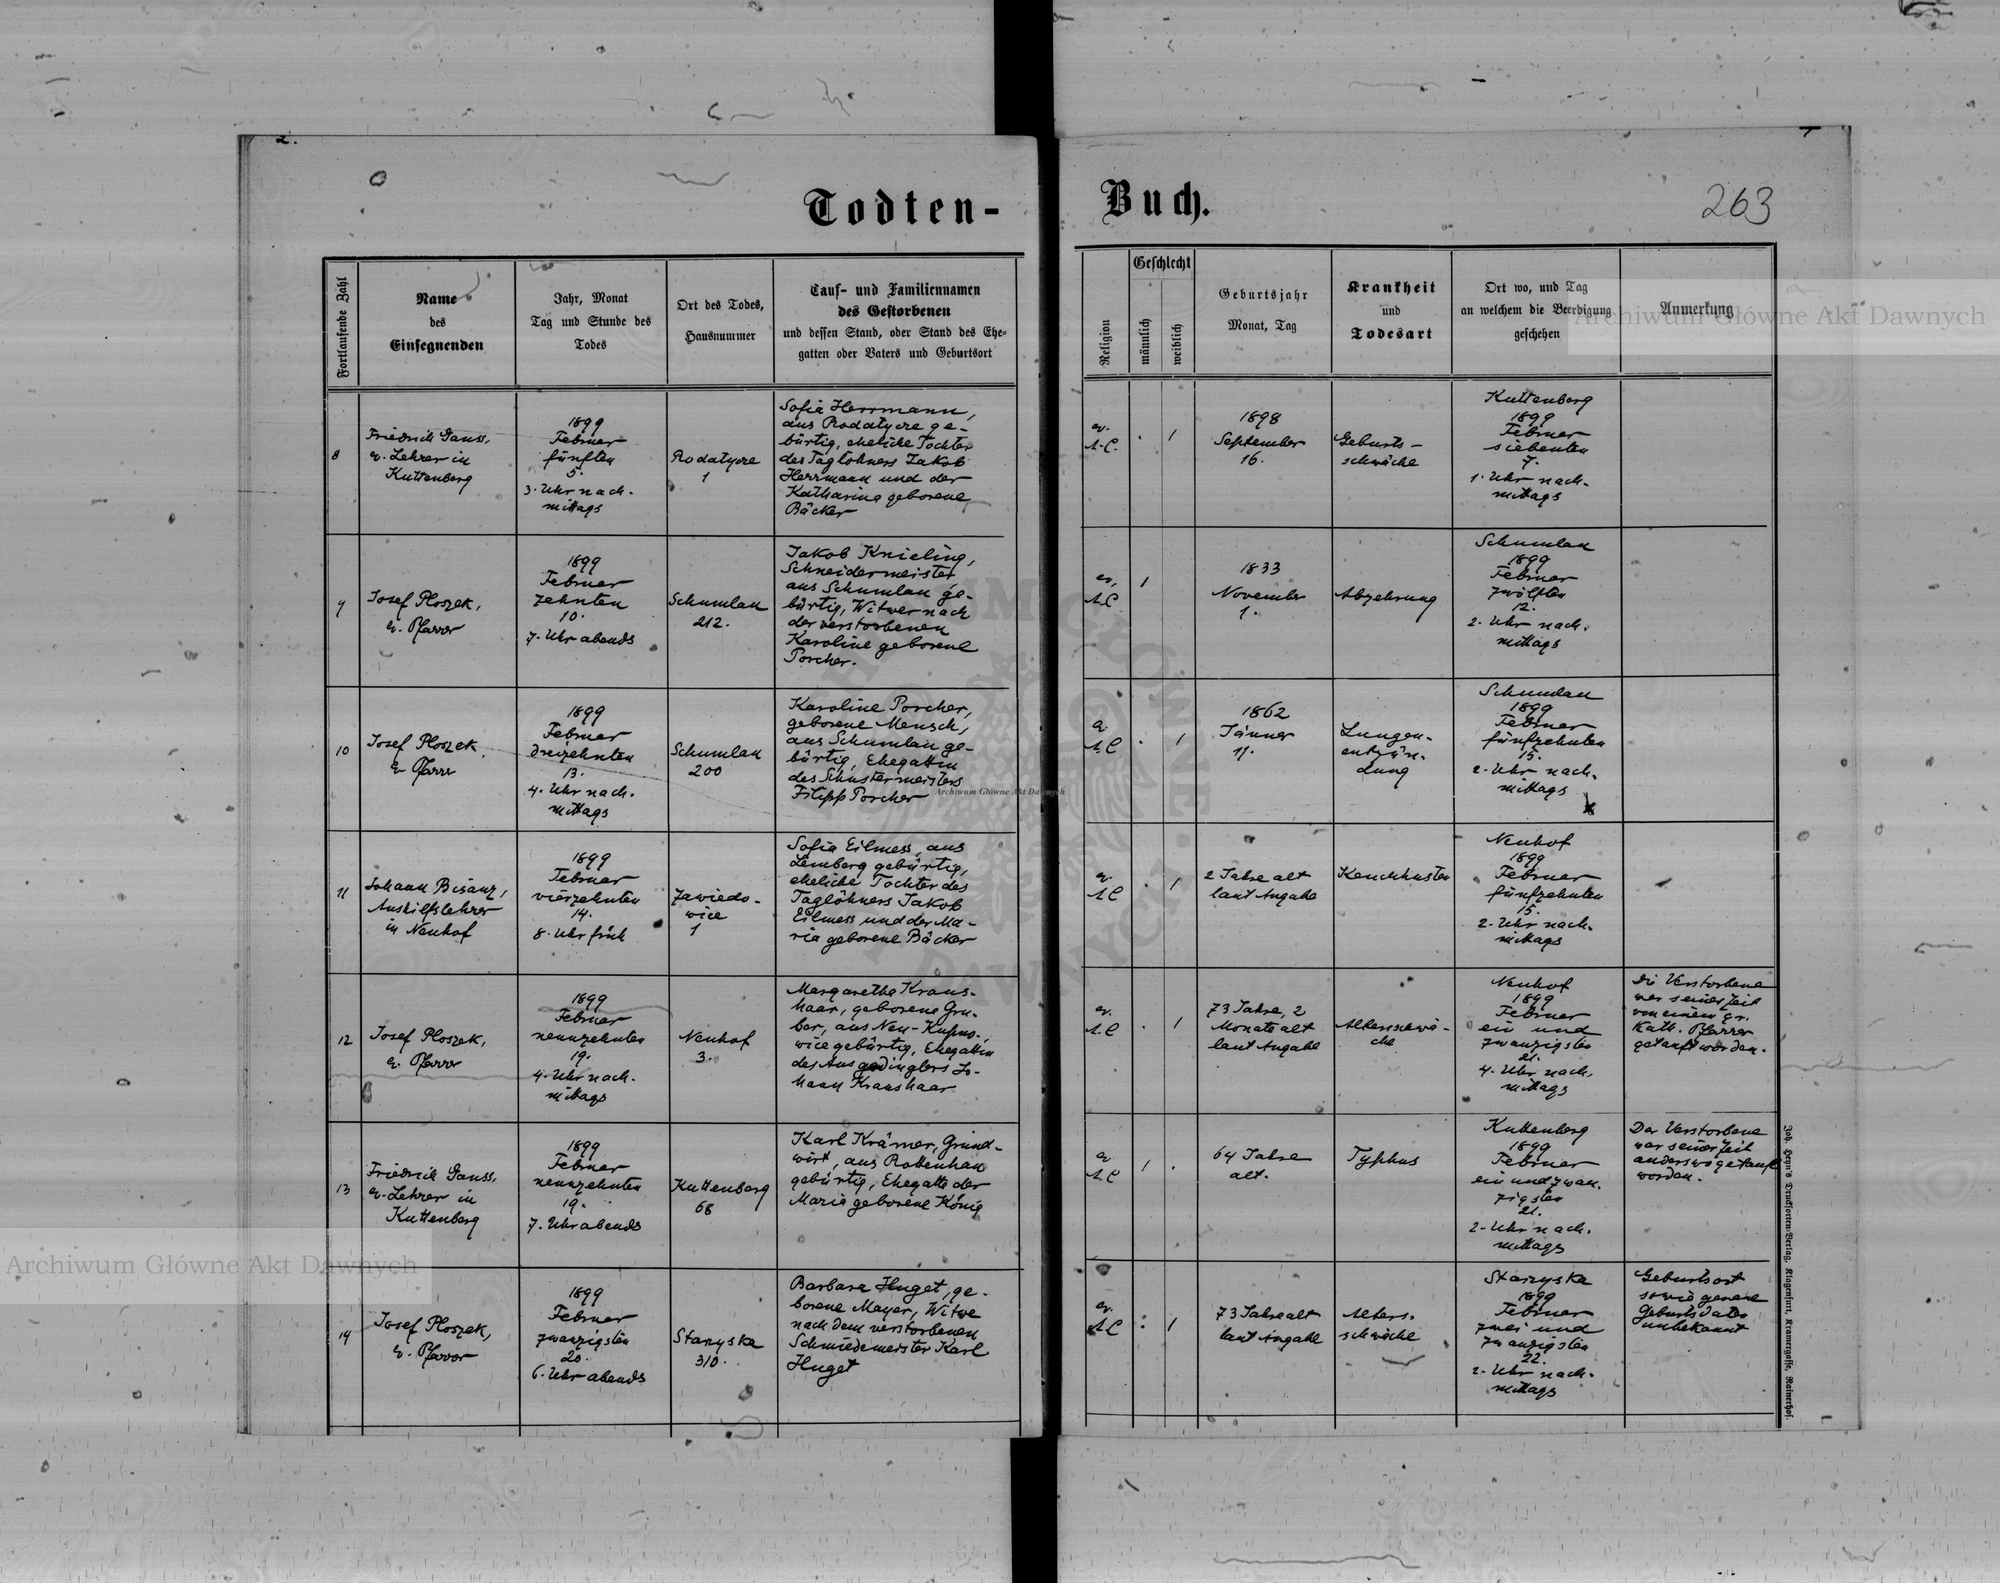 2.
Todten-
Buch.
263
Fortlaufende Zahl
Name
des
Einsegnenden
Jahr, Monat
Tag und Stunde des
Todes
Ort des Todes,
Hausnummer
Tauf- und Familiennamen
des Gestorbenen
und dessen Stand, oder Stand des Ehe-
gatten oder Vaters und Geburtsort
Religion
Geschlecht
männlich
weiblich
Geburtsjahr
Monat, Tag
Krankheit
und
Todesart
Ort wo, und Tag
an welchem die Beerdigung
geschehen
Anmerkung
8
Friedrich Gauss,
ev. Lehrer in
Kuttenberg
1899
Februar
fünften
5.
3. Uhr nach-
mittags
Rodatycze
1
Sofia Herrmann,
aus Rodatycze ge-
bürtig, eheliche Tochter
des Taglöhners Jakob
Herrmann und der
Katharina geborene
Bäcker
ev.
A.C.
.
1
1898
September
16.
Geburts-
schwäche
Kuttenberg
1899
Februar
siebenten
7.
1. Uhr nach-
mittags
9
Josef Ploszek,
ev. Pfarrer
1899
Februar
zehnten
10.
7. Uhr abends
Schumlau
212.
Jakob Knieling,
Schneidermeister
aus Schumlau ge-
bürtig, Witwer nach
der verstorbenen
Karoline geborene
Porcher.
ev.
A.C.
1
1833
November
1.
Abzehrung
Schumlau
1899
Februar
zwölften
12.
2. Uhr nach-
mittags
10
Josef Ploszek,
ev. Pfarrer
1899
Februar
dreizehnten
13.
4. Uhr nach-
mittags
Schumlau
200
Karoline Porcher,
geborene Mensch,
aus Schumlau ge-
bürtig, Ehegattin
des Schustermeisters
Filipp Porcher
ev.
A.C.
.
1
1862
Jänner
11.
Lungen-
entzün-
dung
Schumlau
1899
Februar
fünfzehnten
15.
2. Uhr nach-
mittags
11
Johann Bisanz,
Aushilfslehrer
in Neuhof
1899
Februar
vierzehnten
14.
8. Uhr früh
Zawiedo-
wice
1
Sofia Eilmess, aus
Lemberg gebürtig,
eheliche Tochter des
Taglöhners Jakob
Eilmess und der Ma-
ria geborene Bäcker
ev.
A.C.
.
1
2 Jahre alt
laut Angabe
Keuchhusten
Neuhof
1899
Februar
fünfzehnten
15.
2. Uhr nach-
mittags
12
Josef Ploszek,
ev. Pfarrer
1899
Februar
neunzehnten
19.
4. Uhr nach-
mittags
Neuhof
3.
Margaretha Kraus-
haar, geborene Gru-
ber, aus Neu-Kupno-
wice gebürtig, Ehegattin
des Ausgedinglers Jo-
hann Kraushaar
ev.
A.C.
.
1
73 Jahre, 2
Monate alt
laut Angabe
Altersschwä-
che
Neuhof
1899
Februar
ein und
zwanzigsten
21.
4. Uhr nach-
mittags
Die Verstorbene
war seinerzeit
von einem gr.
kath. Pfarrer
getauft worden.
13
Friedrich Gauss,
ev. Lehrer in
Kuttenberg
1899
Februar
neunzehnten
19.
7. Uhr abends
Kuttenberg
68
Karl Krämer, Grund-
wirt, aus Rottenhan
gebürtig, Ehegatte der
Maria geborene König
ev.
A.C.
1
.
64 Jahre
alt.
Typhus
Kuttenberg
1899
Februar
ein und zwan-
zigsten
21.
2. Uhr nach-
mittags
Der Verstorbene
war seinerzeit
anderswo getauft
worden.
14
Josef Ploszek,
ev. Pfarrer
1899
Februar
zwanzigsten
20.
6. Uhr abends
Starzyska
310.
Barbara Huget, ge-
borene Mayer, Witwe
nach dem verstorbenen
Schmiedemeister Karl
Huget
ev.
A.C.
.
1
73 Jahre alt
laut Angabe
Alters-
schwäche
Starzyska
1899
Februar
zwei und
zwanzigsten
22.
2. Uhr nach-
mittags
Geburtsort
sowie genaue
Geburtsdaten
unbekannt
Joh. Heyn's Drucksorten-Verlag, Klagenfurt, Kramergasse, Rainerhof.
Archiwum Główne Akt Dawnych
Archiwum Główne Akt Dawnych
Archiwum Główne Akt Dawnych